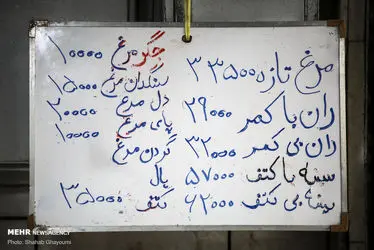 مرغ تازه ۳۳۵۰۰
ران با کمر ۲۹۰۰۰
ران بی کمر ۳۲۰۰۰
سینه با کتف ۵۷۰۰۰
سینه بی کتف ۶۲۰۰۰
جگر مرغ ۱۰۰۰۰
سنگدان مرغ ۱۵۰۰۰
دل مرغ ۲۰۰۰۰
پای مرغ ۱۰۰۰۰
گردن مرغ
بال
کتف ۳۵۰۰۰
MEHR NEWSAGENCY
Photo: Shahab Ghayoumi